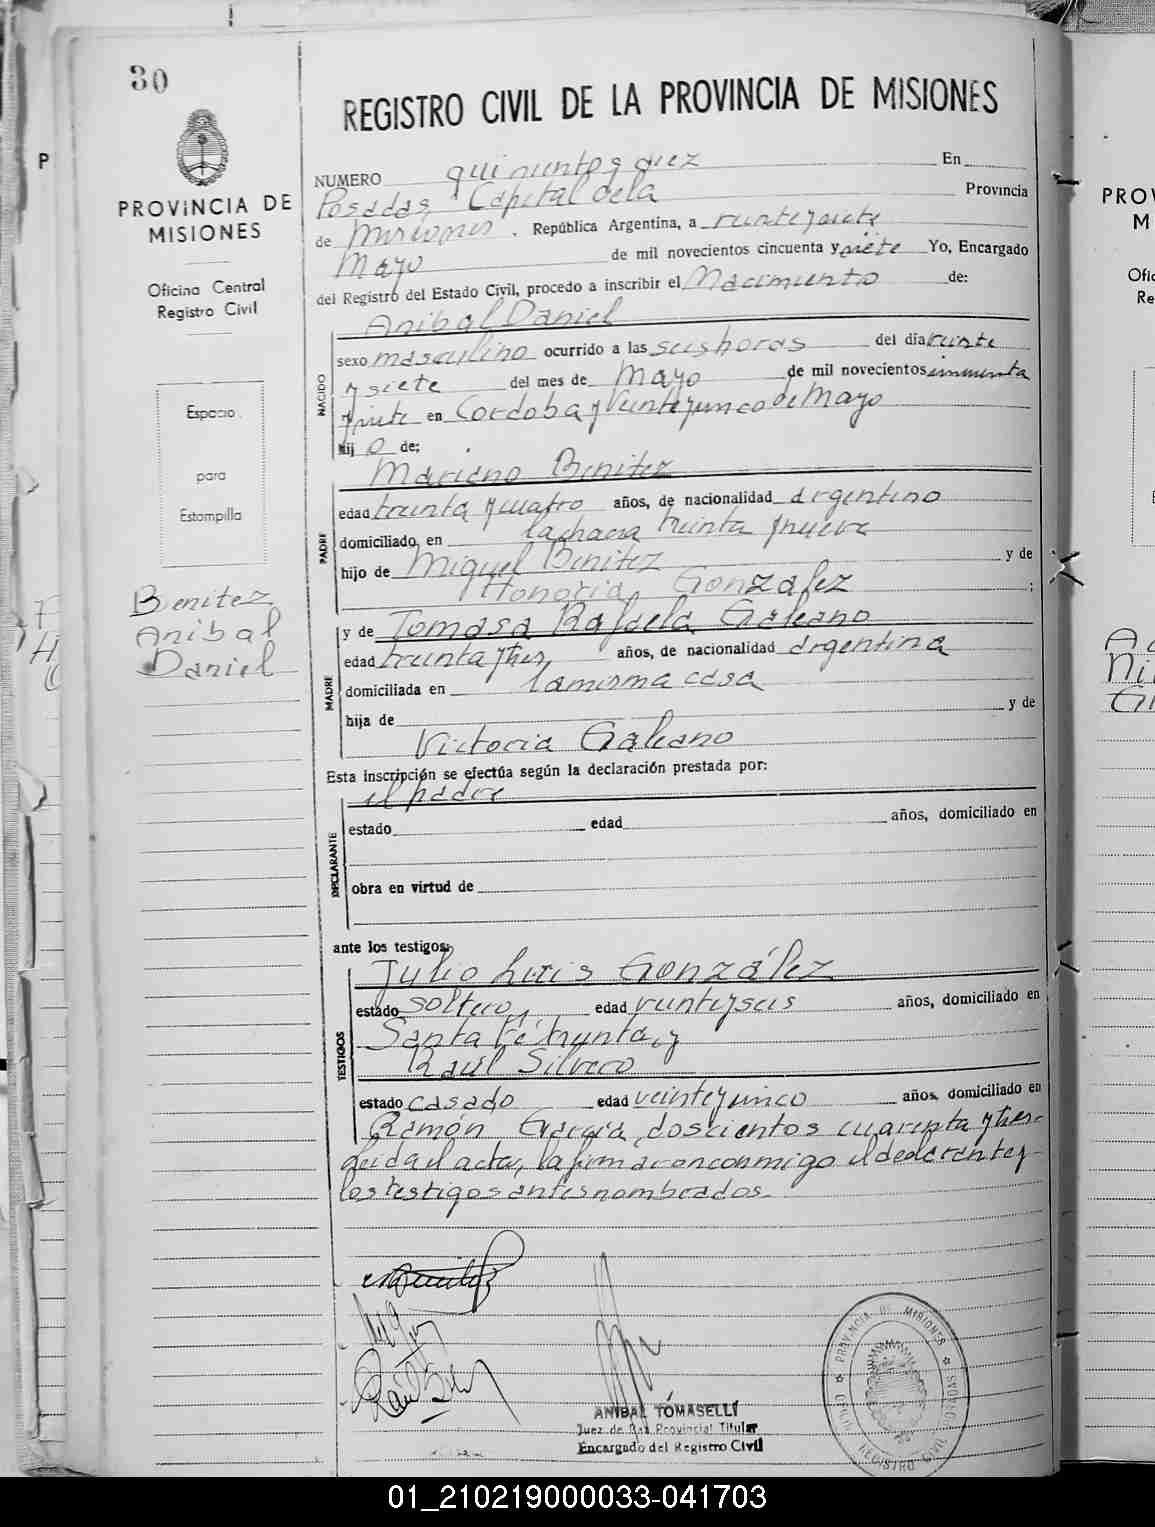 30
PROVINCIA DE
MISIONES
Oficina Central
Registro Civil
Espacio
para
Estampilla
Benitez
Anibal
Daniel
REGISTRO CIVIL DE LA PROVINCIA DE MISIONES
NUMERO quinientos diez En
Posadas, Capital dela Provincia
de Misiones. República Argentina, a veintisiete
Mayo de mil novecientos cincuenta y siete Yo, Encargado
del Registro del Estado Civil, procedo a inscribir el Nacimiento de:
Anibal Daniel
NACIDO
sexo masculino ocurrido a las seis horas del día veinte
y siete del mes de Mayo de mil novecientos cincuenta
y siete en Cordoba y Veinticinco de Mayo
hijo de:
Mariano Benitez
PADRE
edad treinta y cuatro años, de nacionalidad argentino
domiciliado en la chacra treinta y nueve
hijo de Miguel Benitez y de
Honoria Gonzalez ;
y de Tomasa Rafaela Galeano
MADRE
edad treinta y tres años, de nacionalidad argentina
domiciliada en la misma casa
hija de y de
Victoria Galeano
Esta inscripción se efectúa según la declaración prestada por:
el padre
DECLARANTE
estado edad años, domiciliado en
obra en virtud de
ante los testigos:
Julio Luis González
TESTIGOS
estado soltero, edad veintiseis años, domiciliado en
Santa Fé treinta, y
Raúl Silvero
estado casado edad veinticinco años, domiciliado en
Ramón García, doscientos cuarenta y tres.
leida el acta, la firmaron conmigo el declarante y
los testigos antes nombrados.
ANIBAL TOMASELLI
Juez de Paz Provincial Titular
Encargado del Registro Civil
PROVINCIA DE MISIONES
REGISTRO CIVIL
POSADAS
01_210219000033-041703